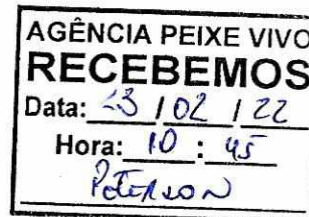 AGÊNCIA PEIXE VIVO
RECEBEMOS
Data: 23 / 02 / 22
Hora: 10 : 45
PETERSON